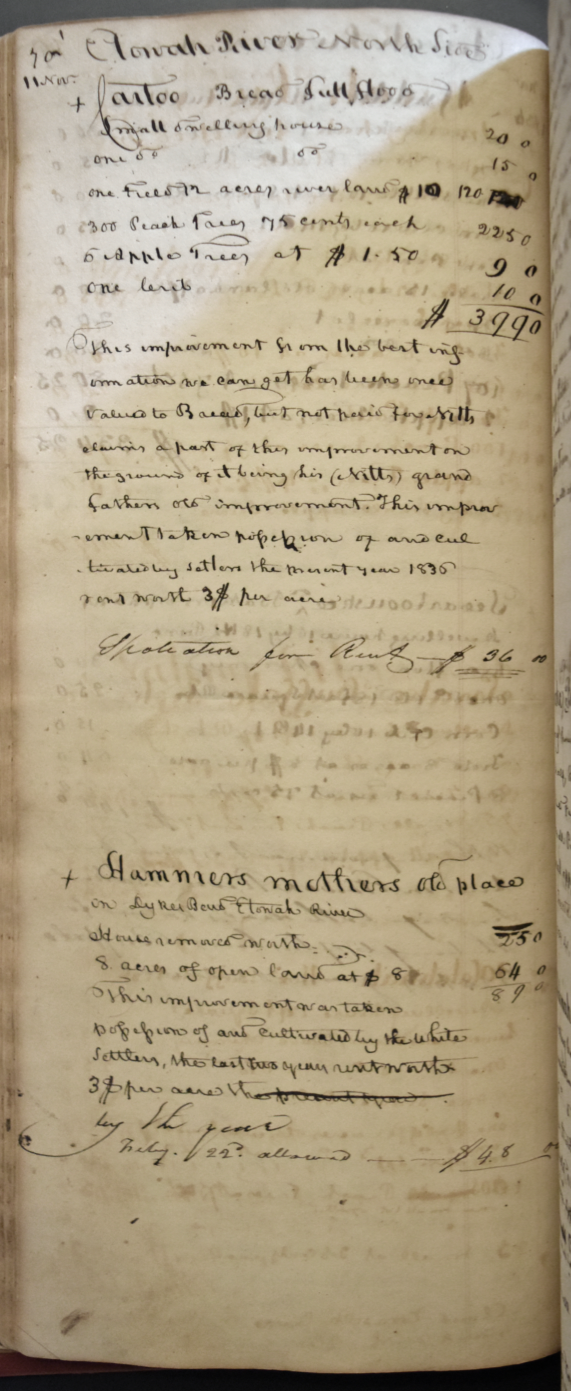 Etowah River North Side
11 Nov.
+ Bread
Small dwelling house 20 0
one do do 15 0
one Field 12 acres river land $10 120
300 Peach Trees 75 cents each 225 0
6 Apple Trees at $1.50 9 0
one 10 0
$ 399 0
This improvement from the best inf-
ormation we can get has been once
Valued to Bread, but not paid for
claims a part of this improvement on
the ground of it being his grand
fathers old improvement. This improv
-ement taken possession of and cul
-tivated by settlers the present year 1836
rent worth 3$ per acre
Spoliation for Rent — $ 36 00
+ Hammers mothers old place
on Dykes Bend Etowah River
House removed worth 25 0
8 acres of open land at $ 8 64 0
89 0
This improvement was taken
possession of and cultivated by the white
Settlers, the last two years rent worth
3$ per acre the present year
by the year
Feby. 22d. allowed — $48 00